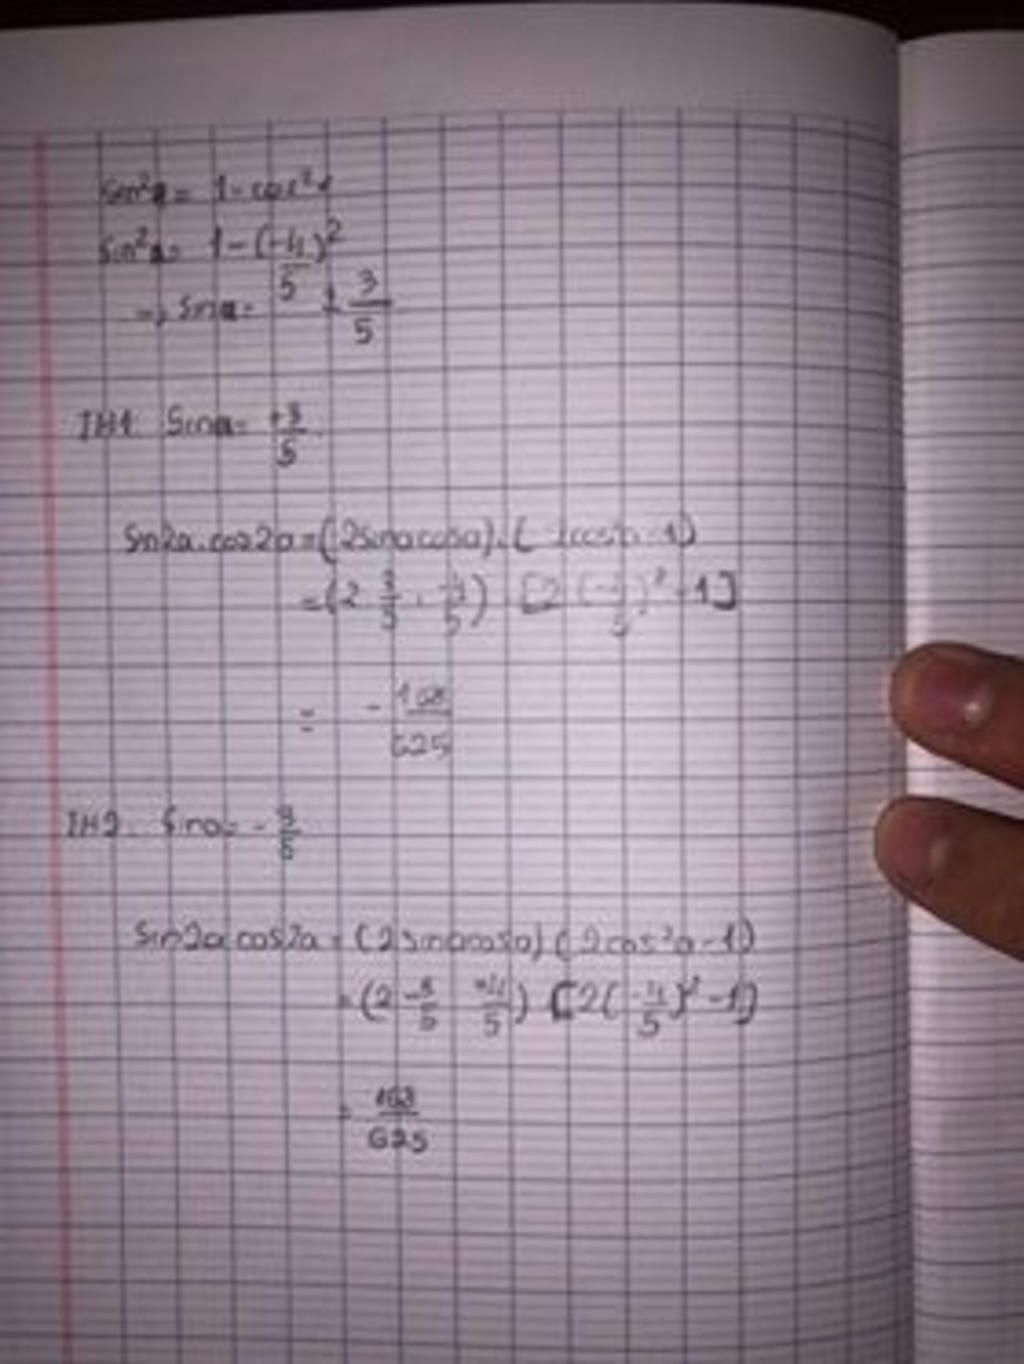 sin²a = 1 - cos²a
sin²a = 1 - (-4/5)²
=> sina = ± 3/5
TH1. Sina = +3/5.
Sin2a.cos2a = (2sinacosa).(2cos²a - 1)
= (2. 3/5 . -4/5) [2(-4/5)² - 1]
= - 168/625
TH2. Sina = - 3/5
Sin2a cos2a = (2sinacosa) (2cos²a - 1)
= (2 -3/5 -4/5) [2(-4/5)² - 1]
= 168/625